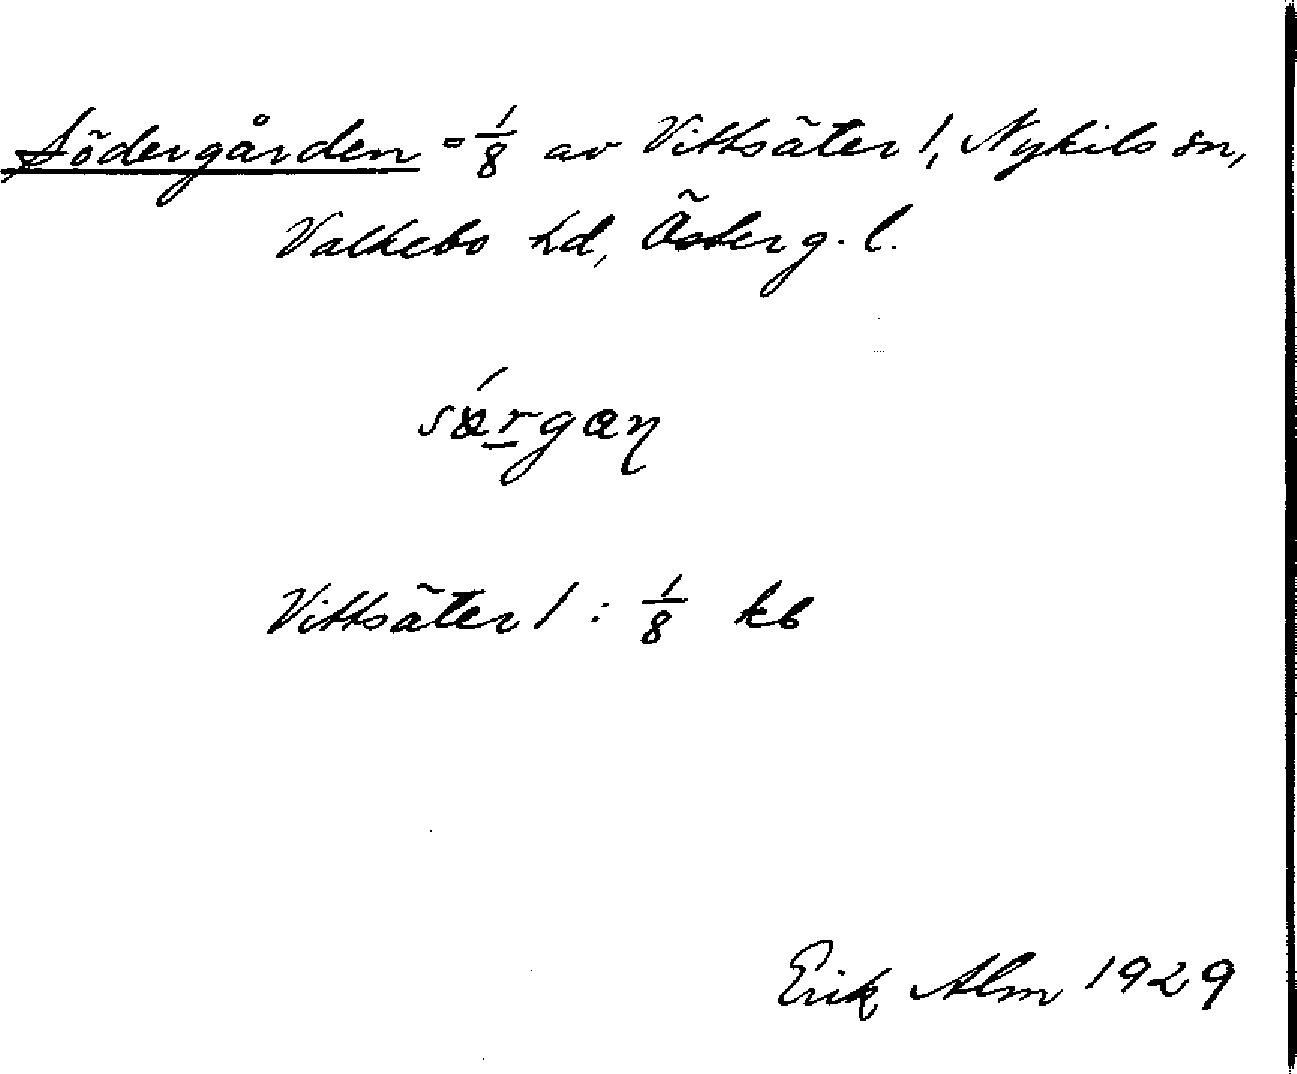 Södergården = 1/8 av Vittsäter 1, Nykils sn,
Valkebo hd, Österg. l.
Vittsäter 1 : 1/8 kb
Erik Alm 1929